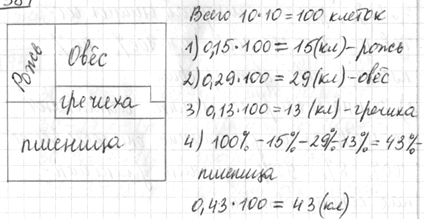 Рожь
Овёс
гречиха
пшеница
Всего 10·10=100 клеток
1) 0,15·100=15(кл)-рожь
2) 0,29·100=29(кл)-овёс
3) 0,13·100=13(кл)-гречиха
4) 100%-15%-29%-13%=43%-
пшеница
0,43·100=43(кл)